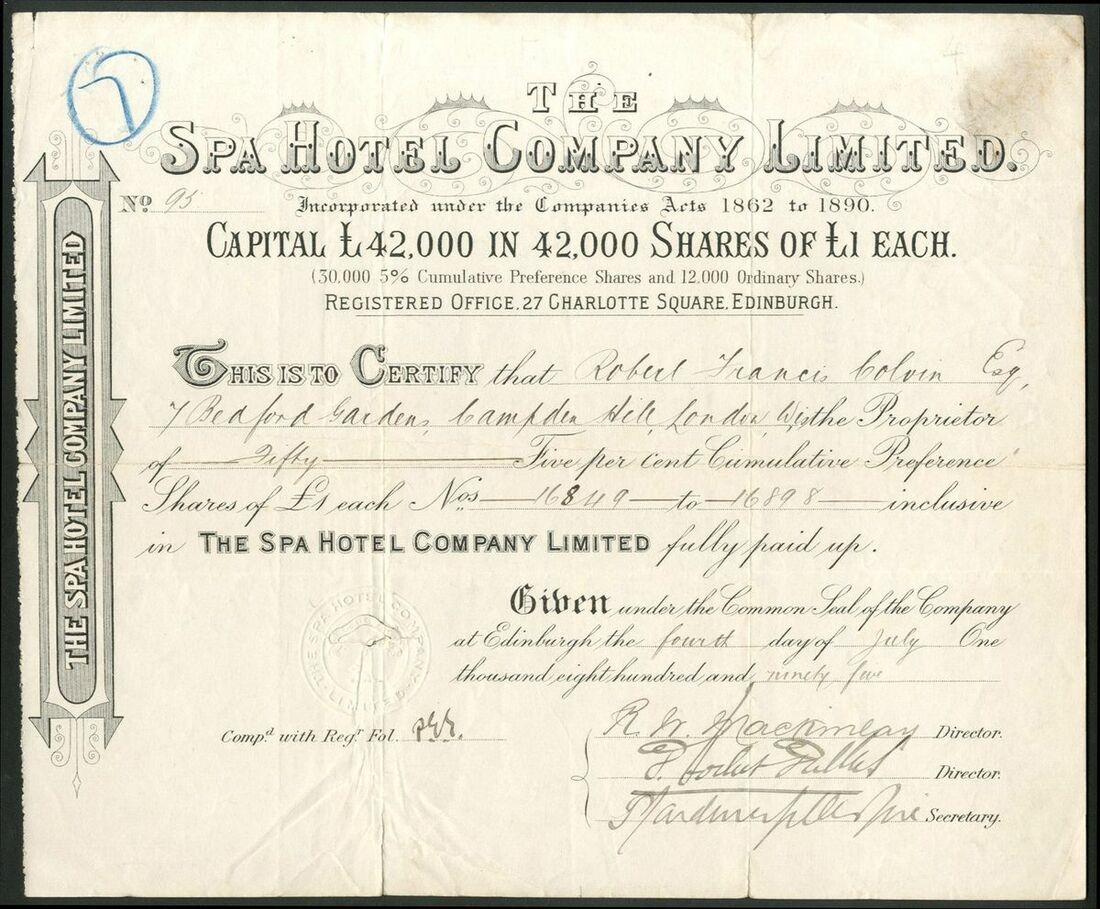 7
THE
SPA HOTEL COMPANY LIMITED.
No 95
Incorporated under the Companies Acts 1862 to 1890.
CAPITAL £42,000 IN 42,000 SHARES OF £1 EACH.
(30,000 5% Cumulative Preference Shares and 12,000 Ordinary Shares.)
REGISTERED OFFICE, 27 CHARLOTTE SQUARE, EDINBURGH.
THIS IS TO CERTIFY that Robert Francis Colvin Esq,
7 Bedford Gardens, Campden Hill, London, W, is the Proprietor
of Fifty Five per cent Cumulative Preference
Shares of £1 each Nos 16849 to 16898 inclusive
in THE SPA HOTEL COMPANY LIMITED fully paid up.
Given under the Common Seal of the Company
at Edinburgh the fourth day of July One
thousand eight hundred and ninety five
THE SPA HOTEL COMPANY LIMITED
THE SPA HOTEL COMPANY LIMITED
Comp.d with Reg.r Fol.
R. W. Director.
Director.
Secretary.